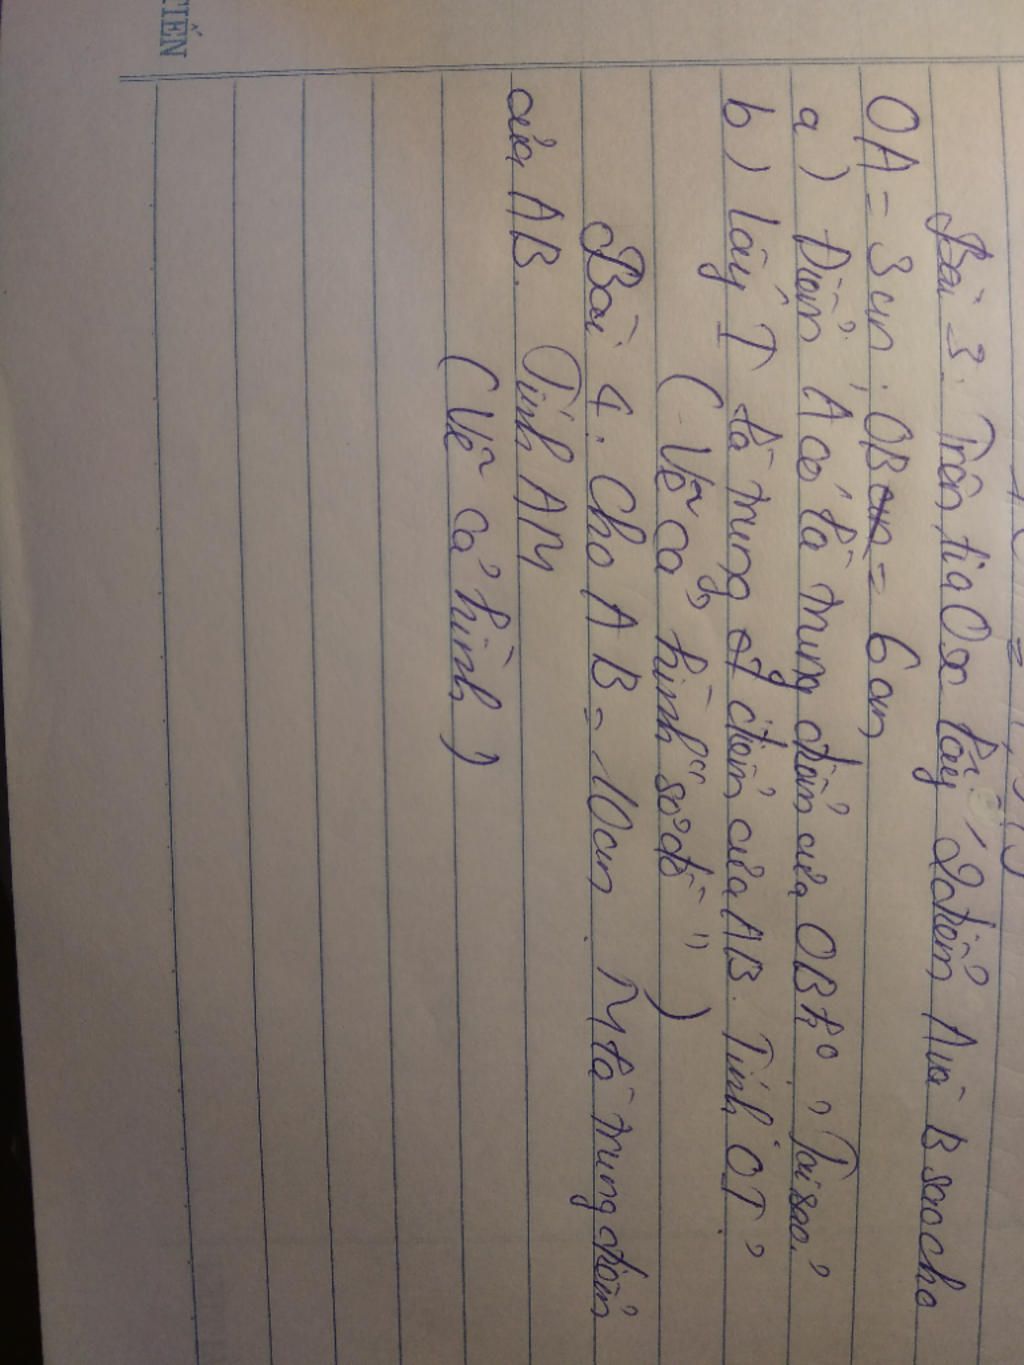 TIẾN
Bài 3. Trên tia Ox lấy 2 điểm A và B sao cho
OA = 3cm; OB cm = 6cm
a) Điểm A có là trung điểm của OB ko? Tại sao?
b) lấy T là trung điểm của AB. Tính OT?
(Vẽ cả hình "sơ đồ")
Bài 4. Cho AB = 10cm. M là trung điểm
của AB. Tính AM
(Vẽ cả hình)